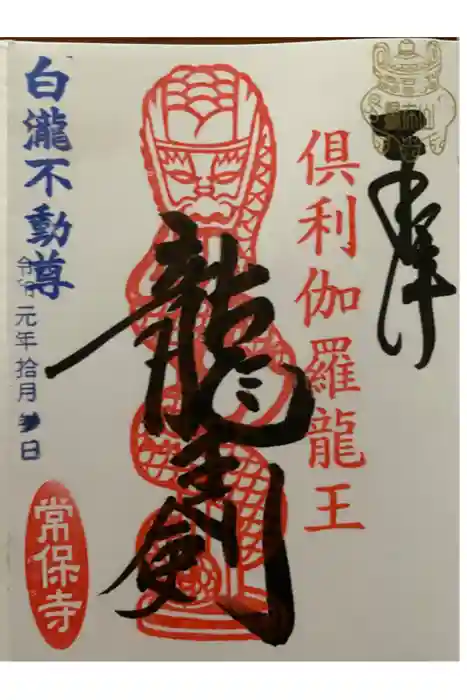 奉拝
倶利伽羅龍王
龍王剣
白瀧不動尊
令和元年拾月 日
常保寺